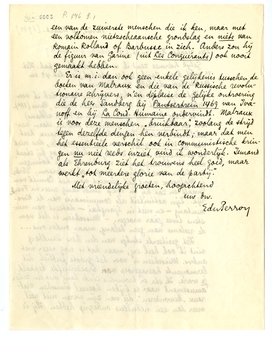 een van de zuiverste menschen die ik ken, maar met
een volkomen nietzscheaansche grondslag en niets van
Romain Rolland of Barbusse in zich. Anders zou hij
de figuur van Garine (uit Les Conquérants) ook nooit
gemaakt hebben.
Er is m.i. dan ook geen enkele gelijkenis tusschen de
boeken van Malraux en die van de Russische revolu-
tionaire schrijvers, en
die de heer Sandberg bij Pantsertrein 1469 van Iva-
noff en bij La Cond. Humaine ondervindt. Malraux
is voor deze menschen "bruikbaar", zoolang de strijd
tegen dezelfde dingen hen verbindt; maar dat men
het essentieele verschil ook in communistische krin-
gen nu niet reeds inziet vind ik wonderlijk. Iemand
als Ehrenburg ziet het trouwens heel goed, maar
werkt "tot meerder glorie van de partij".
Met vriendelijke groeten, hoogachtend
uw dw.
EduPerron